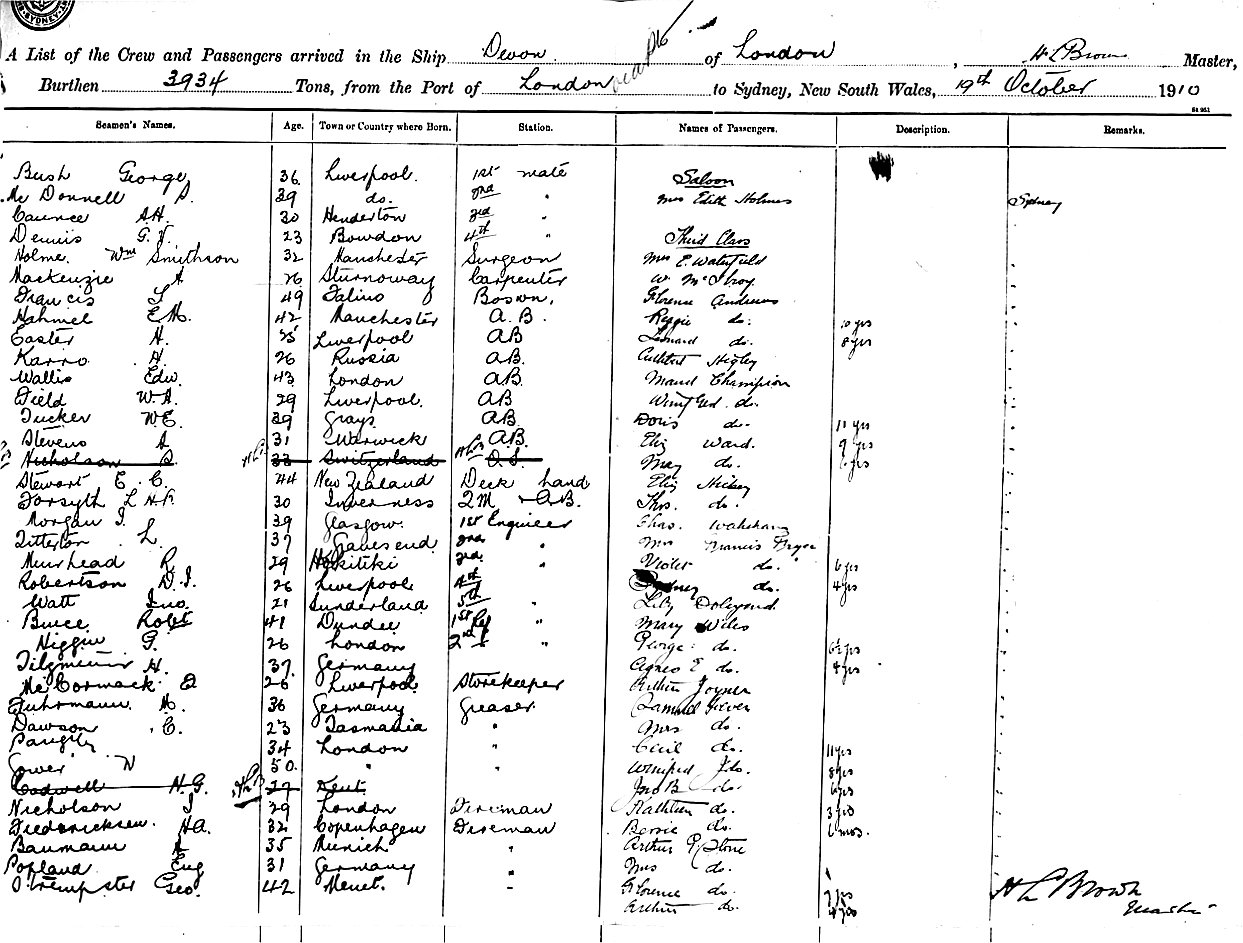 A List of the Crew and Passengers arrived in the Ship Devon of London, H L Brown Master,
Burthen 3934 Tons, from the Port of London to Sydney, New South Wales, 19th October 1910
Seamen's Names. Age. Town or Country where Born. Station. Names of Passengers. Description. Remarks.
Bush George 36 Liverpool. 1st mate Saloon
Mc Donnell 39 do. 2nd " Mrs Edith Holmes Sydney
Caunce A.H. 30 Henderton 3rd "
Dennis G. 23 Bowdon 4th " Third Class
Holme. Wm Smithson 32 Manchester Surgeon Mrs E. Waterfield "
Mackenzie A 26 Sturnoway Carpenter W. McIlroy "
Francis 49 Boswn. Florence Andrews "
Hahmel E.M. 42 Manchester A.B. Reggie do. 10 yrs "
Easter H. 25 Liverpool AB Leonard do. 8 yrs "
Karro A. 26 Russia AB. Cuthbert Higley "
Wallis Edw. 43 London AB. Maud Champion "
Field W.A. 29 Liverpool. AB Winifred do. "
Tucker W.E. 39 Grays. AB. Doris do. 11 yrs "
Stevens A 31 Warwick AB. Eliz Ward. 9 yrs "
Nicholson S. 33 Switzerland O.S. May do. yrs "
Stewart E. C. 44 New Zealand Deck hand Eliz Hickey "
Forsyth L 30 Inverness 2M & A.B. Thos. do. "
Morgan I. 39 Glasgow. 1st Engineer Chas. "
Titterton L. 37 Gravesend 2nd " Mrs Francis Fryer "
Muirhead R. 29 Hokitiki 3rd. " Violet do. 6 yrs "
Robertson D.I. 26 Liverpool 4th Sydney do. 4 yrs "
Watt Jno. 21 Sunderland 5th " Lily "
Bruce Robt 41 Dundee 1st Ref " Mary Wiles "
Higgin G. 26 London 2nd " " George do. 6½ yrs "
H. 37 Germany Agnes E do. 4 yrs "
Mc Cormack 26 Liverpool Storekeeper Arthur Joyner "
Fuhrmann M. 36 Germany Greaser Samuel "
Dawson C. 23 Tasmania " Mrs do. "
34 London " Cecil do. 11 yrs "
Gower W 50. " " Winifred do. 8 yrs "
Cadwell H.G. 27 Kent Jno B do. 6 yrs "
Nicholson J 29 London Fireman Kathleen do. 3 yrs "
Fredericksen. H.A. 32 Copenhagen Fireman Bessie do. 6 mos. "
Baumann A 35 Munich " Arthur P Stone "
Popland Eug 31 Germany " Mrs do.
Geo. 42 " Florence do. 7 yrs H L Brown
Arthur do. 4 yrs Master